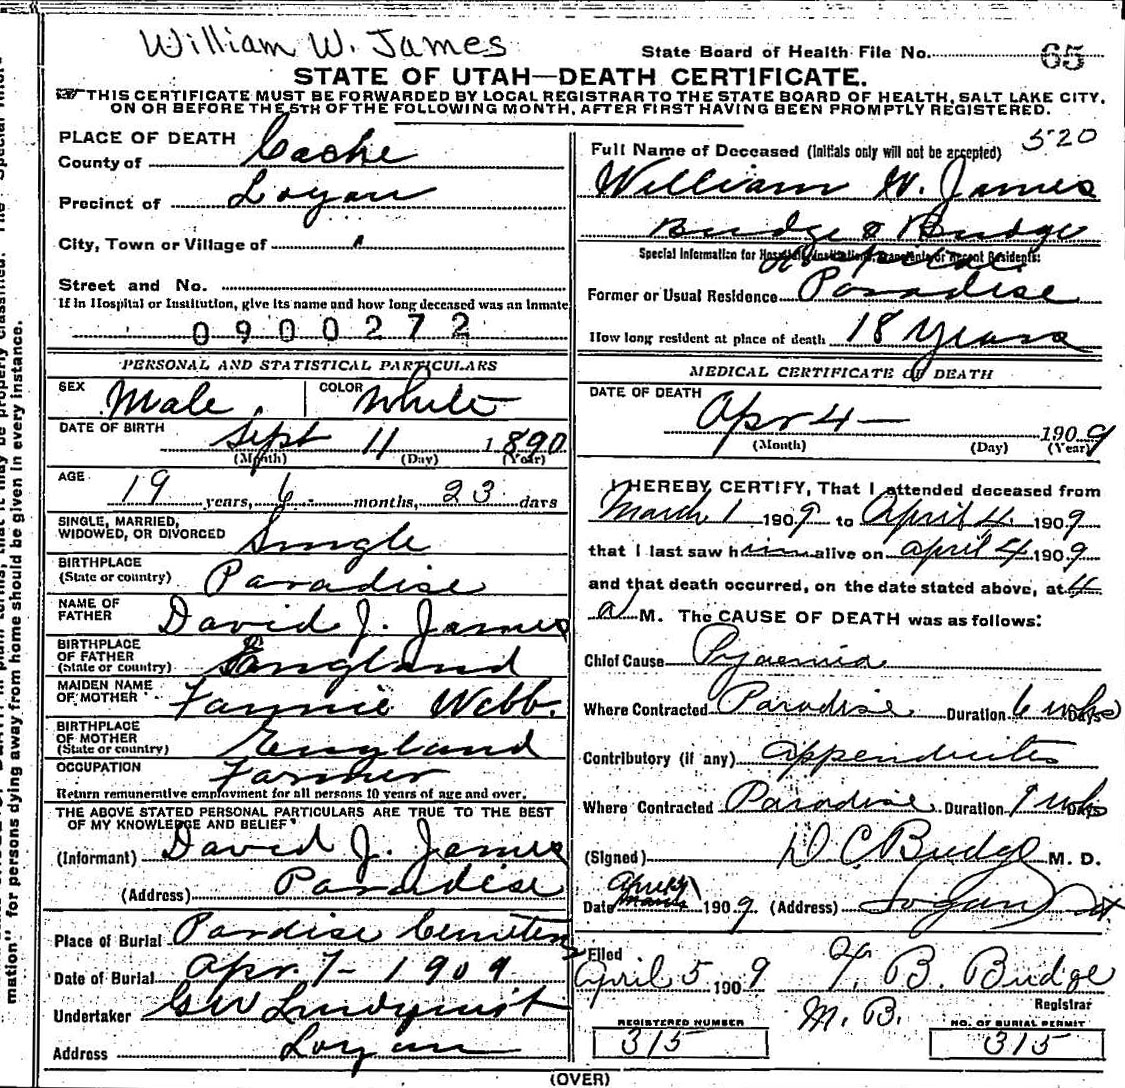 William W. James
State Board of Health File No. 65
STATE OF UTAH—DEATH CERTIFICATE.
THIS CERTIFICATE MUST BE FORWARDED BY LOCAL REGISTRAR TO THE STATE BOARD OF HEALTH, SALT LAKE CITY,
ON OR BEFORE THE 5TH OF THE FOLLOWING MONTH, AFTER FIRST HAVING BEEN PROMPTLY REGISTERED.
PLACE OF DEATH
County of Cache
Precinct of Logan
City, Town or Village of "
Street and No.
If in Hospital or Institution, give its name and how long deceased was an Inmate
0900272
PERSONAL AND STATISTICAL PARTICULARS
SEX Male. COLOR White
DATE OF BIRTH Sept 11 1890
(Month) (Day) (Year)
AGE 19 years, 6 months, 23 days
SINGLE, MARRIED,
WIDOWED, OR DIVORCED Single
BIRTHPLACE
(State or country) Paradise
NAME OF
FATHER David J. James
BIRTHPLACE
OF FATHER
(State or country) England
MAIDEN NAME
OF MOTHER Fannie Webb.
BIRTHPLACE
OF MOTHER
(State or country) England
OCCUPATION Farmer
Return remunerative employment for all persons 10 years of age and over.
THE ABOVE STATED PERSONAL PARTICULARS ARE TRUE TO THE BEST
OF MY KNOWLEDGE AND BELIEF
(Informant) David J. James
(Address) Paradise
Place of Burial Pardise Cemetery
Date of Burial Apr. 7 - 1909
Undertaker GW Lindquist
Address Logan
520
Full Name of Deceased (Initials only will not be accepted)
William W. James
Budge & Budge
Special Information for Hospitals, Institutions, Transients or Recent Residents:
Hospital
Former or Usual Residence Paradise
How long resident at place of death 18 Years
MEDICAL CERTIFICATE OF DEATH
DATE OF DEATH
Apr 4 — 1909
(Month) (Day) (Year)
I HEREBY CERTIFY, That I attended deceased from
March 1 1909 to April 4 1909
that I last saw him alive on April 4 1909
and that death occurred, on the date stated above, at 4
a M. The CAUSE OF DEATH was as follows:
Chief Cause Pyaemia
Where Contracted Paradise Duration 6 wks Days
Contributory (if any) Appendicites
Where Contracted Paradise Duration wks Days
(Signed) D C Budge M. D.
Date April 1909 (Address) Logan Ut.
Filed
April 5 1909 B. Budge
Registrar
M. B.
REGISTERED NUMBER
315
NO. OF BURIAL PERMIT
315
(OVER)
mation" for persons dying away from home should be given in every instance.